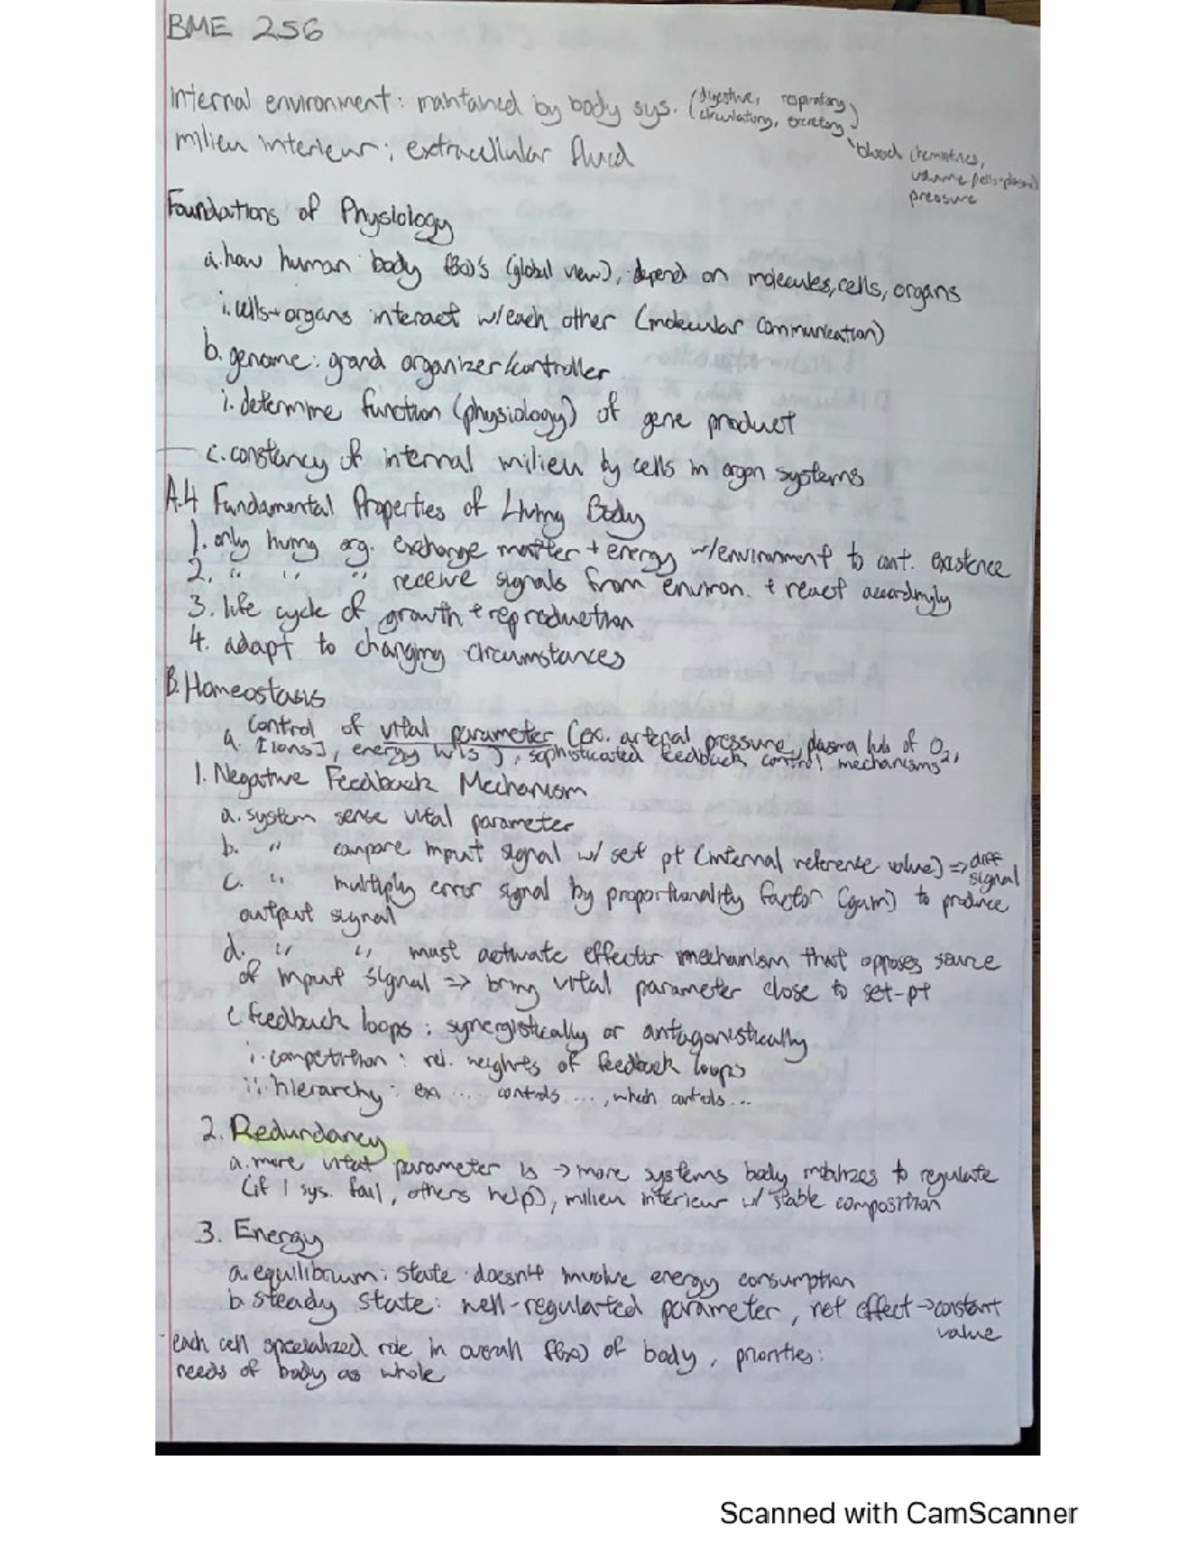 BME 256
Internal environment: maintained by body sys. (digestive, respiratory,
circulatory, excretory)
blood chemistries,
volume (cells+plasma)
pressure
milieu interieur: extracellular fluid
Foundations of Physiology
a. how human body f(x)'s (global view), depend on molecules, cells, organs
i. cells+organs interact w/each other (molecular communication)
b. genome: grand organizer/controller
i. determine function (physiology) of gene product
c. constancy of internal milieu by cells in organ systems
A. 4 Fundamental Properties of Living Body
1. only living org. exchange matter + energy w/environment to cont. existence
2. " " " receive signals from environ. + react accordingly
3. life cycle of growth + reproduction
4. adapt to changing circumstances
B. Homeostasis
a. control of vital parameter (ex. arterial pressure, plasma lvls of O2,
[ions], energy lvls), sophisticated feedback control mechanisms
1. Negative Feedback Mechanism
a. system sense vital parameter
b. " compare input signal w/ set pt (internal reference value) => diff
signal
c. " multiply error signal by proportionality factor (gain) to produce
output signal
d. " " must activate effector mechanism that opposes source
of input signal => bring vital parameter close to set-pt
e. feedback loops: synergistically or antagonistically
i. competition: rel. weights of feedback loops
ii. hierarchy: ex. ... controls ..., which controls ...
2. Redundancy
a. more vital parameter is → more systems body mobilizes to regulate
(if 1 sys. fail, others help), milieu interieur w/ stable composition
3. Energy
a. equilibrium: state doesn't involve energy consumption
b. steady state: well-regulated parameter, net effect → constant
value
- each cell specialized role in overall f(x) of body, priorities:
needs of body as whole
Scanned with CamScanner